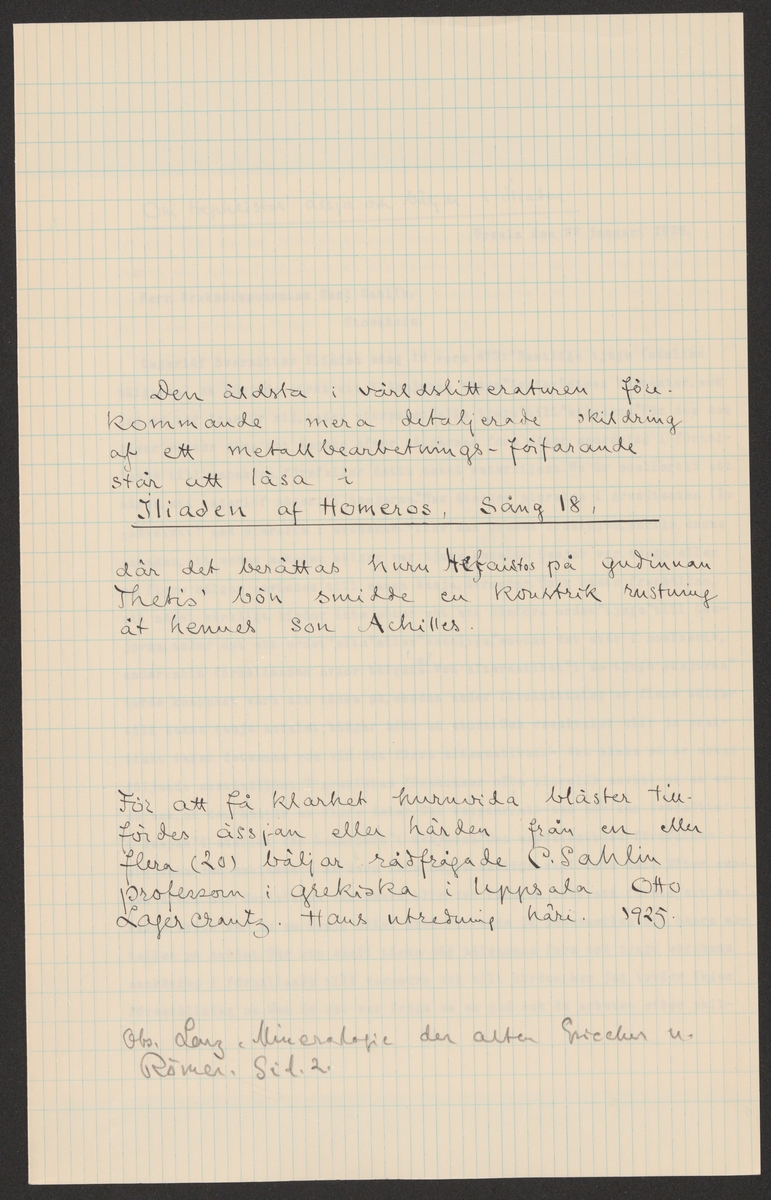 Den äldsta i världslitteraturen före-
kommande mera detaljerade skildring
af ett metallbearbetnings-förfarande
står att läsa i
Iliaden af Homeros, Sång 18,
där det berättas huru Hefaistos på gudinnan
Thetis' bön smidde en konstrik rustning
åt hennes son Achilles.
För att få klarhet huruvida bläster till-
fördes ässjan eller härden från en eller
flera (20) bäljar rådfrågade C. Sahlin
professorn i grekiska i Uppsala Otto
Lagercrantz. Hans utredning häri. 1925.
Obs. Lenz, Mineralogie der alten Griechen u.
Römer. Sid. 2.